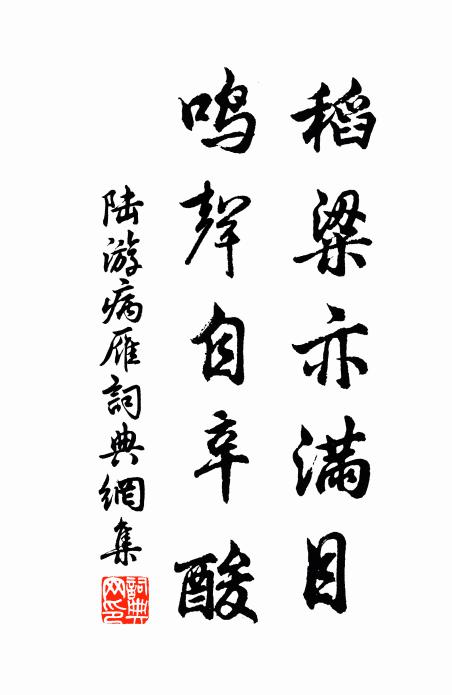 稻粱亦满目
鸣聲自辛酸
陆游病雁詞典網集
詞典网印